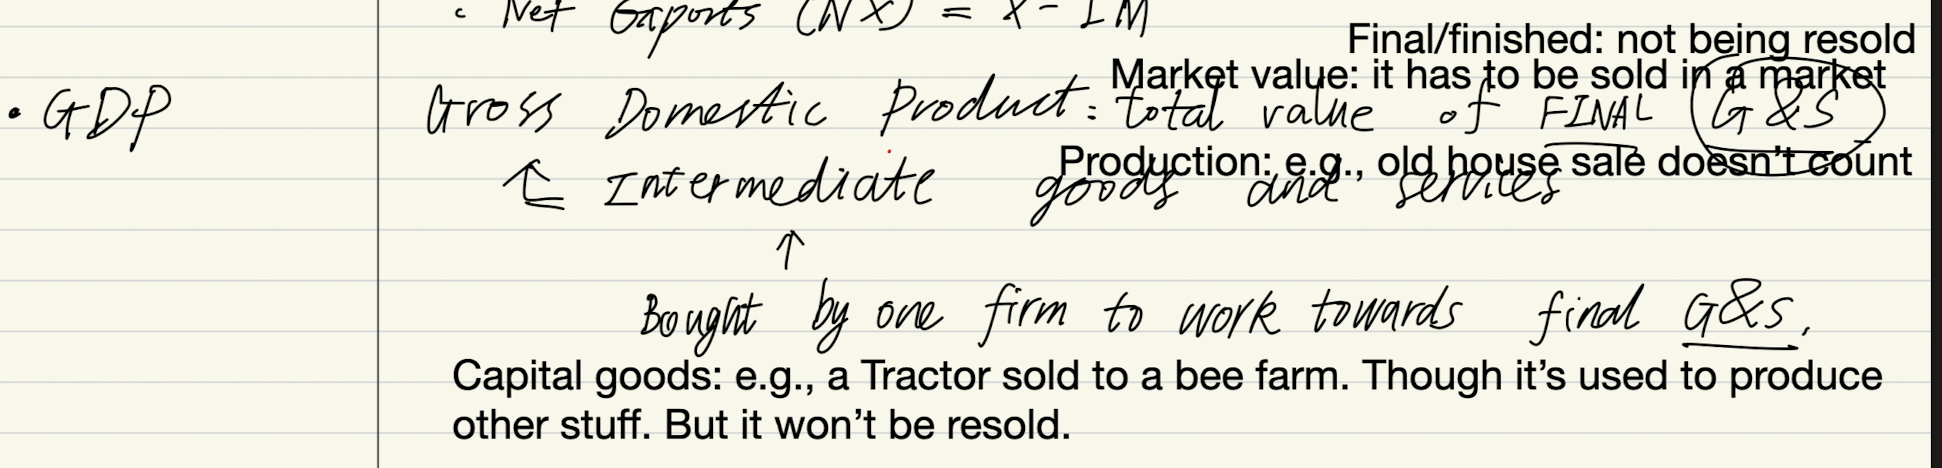 Net Exports (NX) = X - IM
Final/finished: not being resold
Market value: it has to be sold in a market
• GDP
Gross Domestic Product: total value of FINAL G&S
Production: e.g., old house sale doesn't count
Intermediate goods and services
↑
Bought by one firm to work towards final G&S.
Capital goods: e.g., a Tractor sold to a bee farm. Though it's used to produce
other stuff. But it won't be resold.